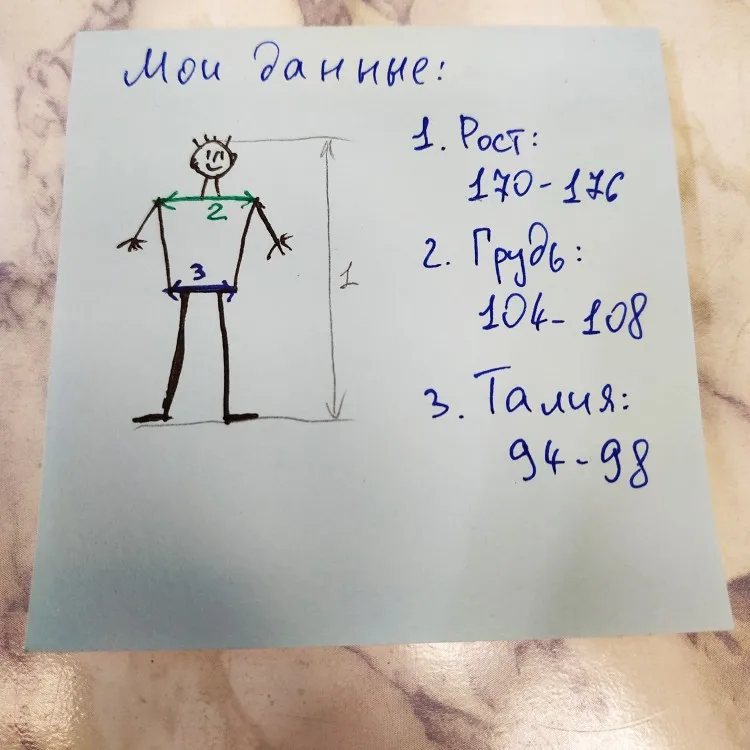 Мои данные:
1. Рост:
170-176
2. Грудь:
104-108
3. Талия:
94-98
2
3
1